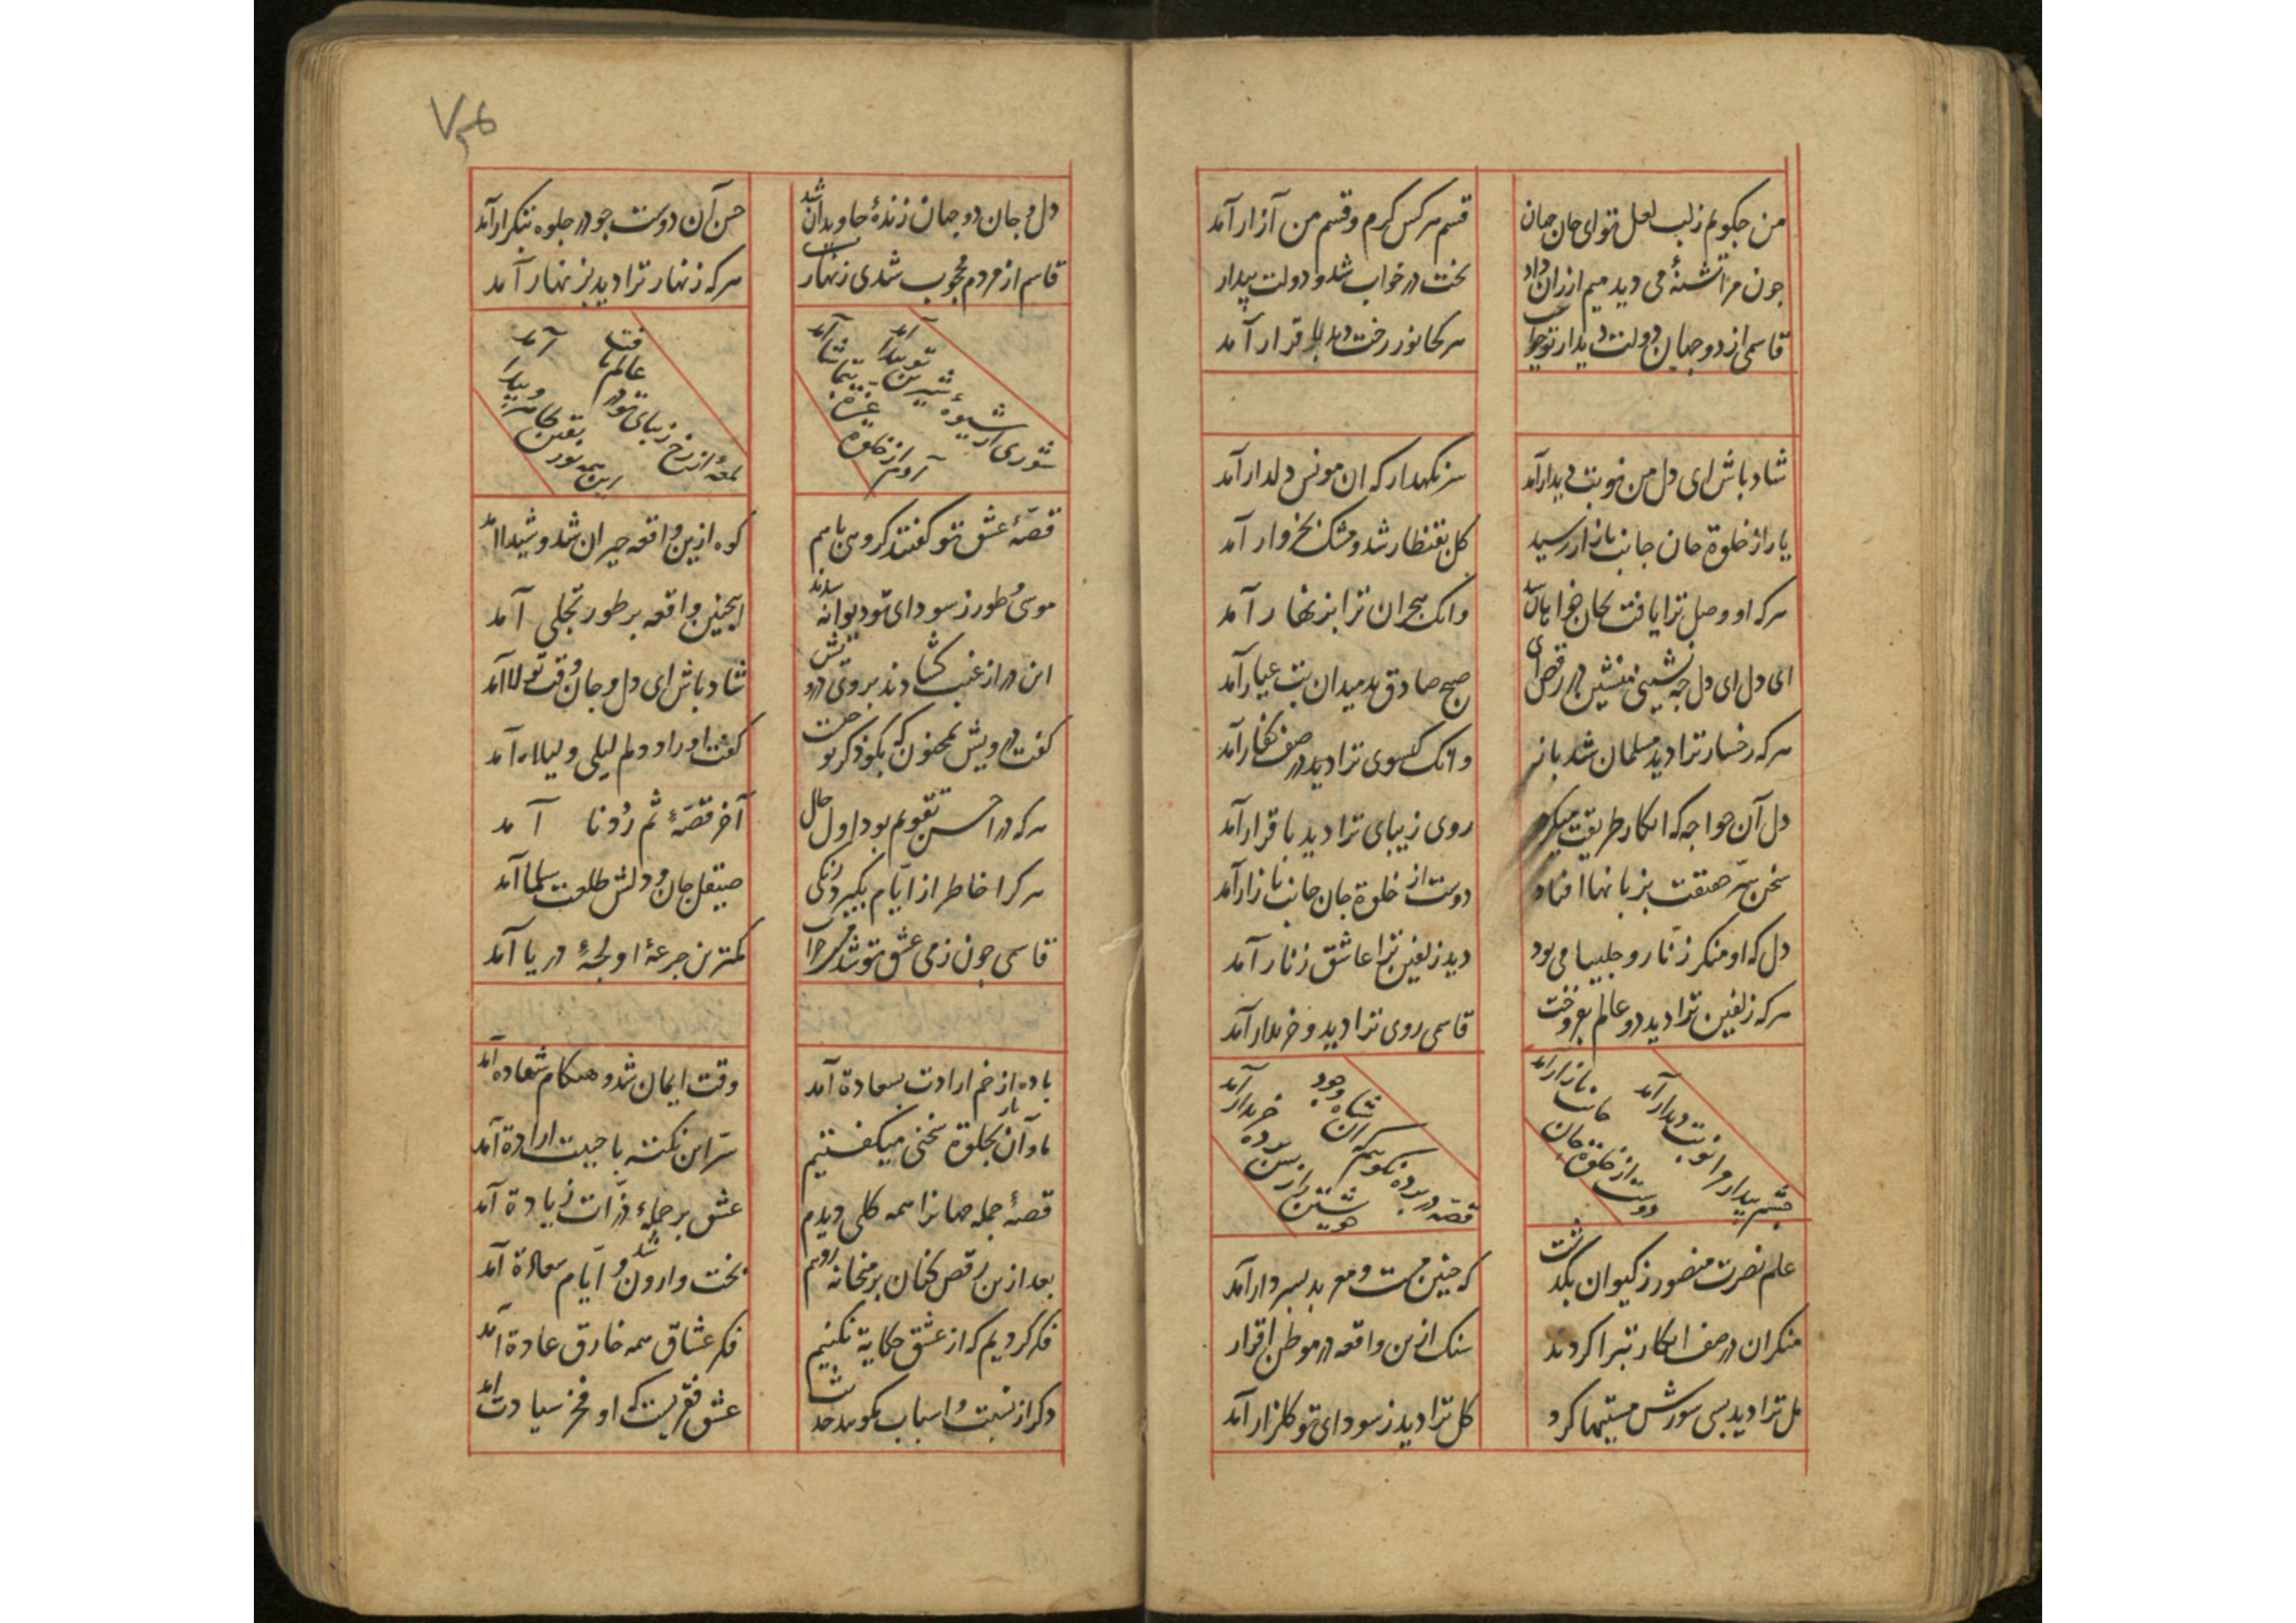 من چگویم ز لب لعل تو ای جان جهان
قسم هرکس کرم و قسم من آزار آمد
چون مرا تشنهٔ می دید میم ارزان داد
بخت در خواب شد و دولت بیدار
قاسمی از دو جهان دولت دیدار تو خواست
هر کجا نور رخت دید باقرار آمد
شاد باش ای دل من نوبت دیدار آمد
سر نکهدار که ان مونس دلدار آمد
یار از خلوة جان جانب بازار رسید
کل بقنطار شد و مشک بخروار آمد
هرکه او وصل ترا یافت بجان خواهان شد
وانک هجران ترا بزنهار آمد
ای دل ای دل چه نشینی منشین در رقص ای
صبح صادق بد میدان بت عیار آمد
هرکه رخسار ترا دید مسلمان شد باز
وانک کیسوی ترا دید در صف کفار آمد
دل آن خواجه که انکار طریقت میکرد
روی زیبای ترا دید باقرار آمد
سخن سرّ حقیقت بزبانها افتاد
دوست از خلوة جان جانب بازار آمد
دل که او منکر زنار و چلیپا می بود
دید زلفین ترا عاشق زنار آمد
هرکه زلفین ترا دید دو عالم بفروخت
قاسمی روی ترا دید و خریدار آمد
چشم بیدار مرا نوبت دیدار آمد
دوست از خلوة جان جانب بازار آمد
قصه در پرده نکویم که آن شاه وجود
خویشتن را ز پس پرده خریدار آمد
علم نصرت منصور ز کیوان بگذشت
که چنین مست و معربد بسر دار آمد
منکران در صف انکار تبرا کردند
سنک ازین واقعه در موطن اقرار
مل ترا دید بسی شورش مستیها کرد
کل ترا دید ز سودای تو کلزار آمد
دل و جان دو جهان زندهٔ جاویدان شد
حسن آن دوست چو در جلوه بتکرار آمد
قاسم از مردم محجوب شدی زنهار
هرکه زنهار ترا دید بزنهار آمد
شوری از شیوهٔ شیرین تو پیدا آمد
آدم از خلوة غیب بتماشا آمد
لمعهٔ از رخ زیبای تو در عالم تافت
این همه نور یقین ظاهر و پیدا آمد
قصهٔ عشق تو کفتند کروهی باهم
کوه ازین واقعه حیران شد و شیدا امد
موسی و طور ز سودای تو دیوانه شدند
اینچنین واقعه بر طور تجلی آمد
این در از غیب کشادند بروی درویش
شاد باش ای دل و جان وقت تولا آمد
کفت درویش بمجنون که بکو ذکر تو چیست
کفت اوراد دلم لیلی و لیلا آمد
هرکه در احسن تقویم بود اول حال
آخر قصهٔ ثم رددنا آمد
هرکرا خاطر از ایام بگیرد زنکی
صیقل جان و دلش طلعت سلما آمد
قاسمی چون ز می عشق تو شد مست و خراب
کمترین جرعهٔ او لجهٔ دریا آمد
باده از خم ارادت بسعادة آمد
وقت ایمان شد و هنکام شهاده آمد
ما و آن یار بخلوة سخنی میکفتیم
سرّ این نکته باحیت ارادة آمد
قصهٔ جمله جهانرا همه کلی دیدم
عشق بر جملهٔ ذرّات زیادة آمد
بعد ازین رقص کنان بر در میخانه رویم
بخت وارون شد و ایّام سعادة آمد
فکر کردیم که از عشق حکایة نکنیم
فکر عشاق همه خارق عادة آمد
دکر از نسبت و اسباب مکویید حدیث
عشق فقریست که او فخر سیادت امد